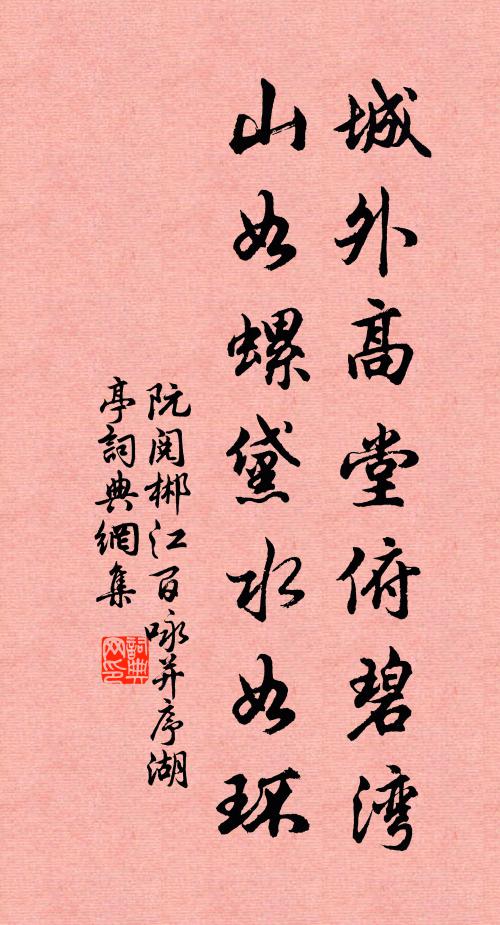 城外高堂俯碧湾
山如螺黛水如环
阮阅郴江百咏并序湖
亭詞典網集
詞典网印